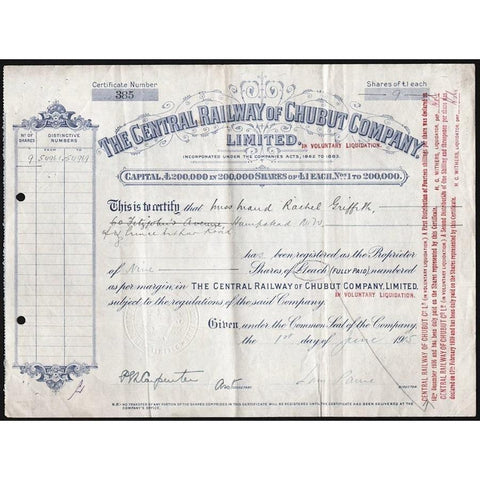 Certificate Number
385
Shares of £1 each
9
THE CENTRAL RAILWAY OF CHUBUT COMPANY,
LIMITED.
IN VOLUNTARY LIQUIDATION.
INCORPORATED UNDER THE COMPANIES ACTS, 1862 TO 1883.
CAPITAL, £200,000 IN 200,000 SHARES OF £1 EACH, Nos. 1 TO 200,000.
Nº OF SHARES
DISTINCTIVE NUMBERS
9
This is to certify that Miss Maud Rachel Griffith,
60 Fitzjohn's Avenue, Hampstead N.W.
Road
has been registered as the Proprietor
of Nine Shares of £1 each (FULLY PAID) numbered
as per margin in THE CENTRAL RAILWAY OF CHUBUT COMPANY, LIMITED,
IN VOLUNTARY LIQUIDATION.
subject to the regulations of the said Company.
Given under the Common Seal of the Company,
the 1st day of June 19
Carpenter
SECRETARY
DIRECTOR
N.B: NO TRANSFER OF ANY PORTION OF THE SHARES COMPRISED IN THIS CERTIFICATE WILL BE REGISTERED UNTIL THE CERTIFICATE HAS BEEN DELIVERED AT THE
COMPANY'S OFFICE.
CENTRAL RAILWAY OF CHUBUT Co. Ld. (IN VOLUNTARY LIQUIDATION.) A First Distribution of Fourteen shillings per share was declared on
December 1936 and has been duly paid on the Shares represented by this Certificate.
H. G. WITHERS, LIQUIDATOR, per
CENTRAL RAILWAY OF CHUBUT Co. Ld. (IN VOLUNTARY LIQUIDATION.) A Second Distribution of
declared on 17th February 1939 and has been duly paid on the Shares represented by this Certificate.
H. G. WITHERS, LIQUIDATOR, per